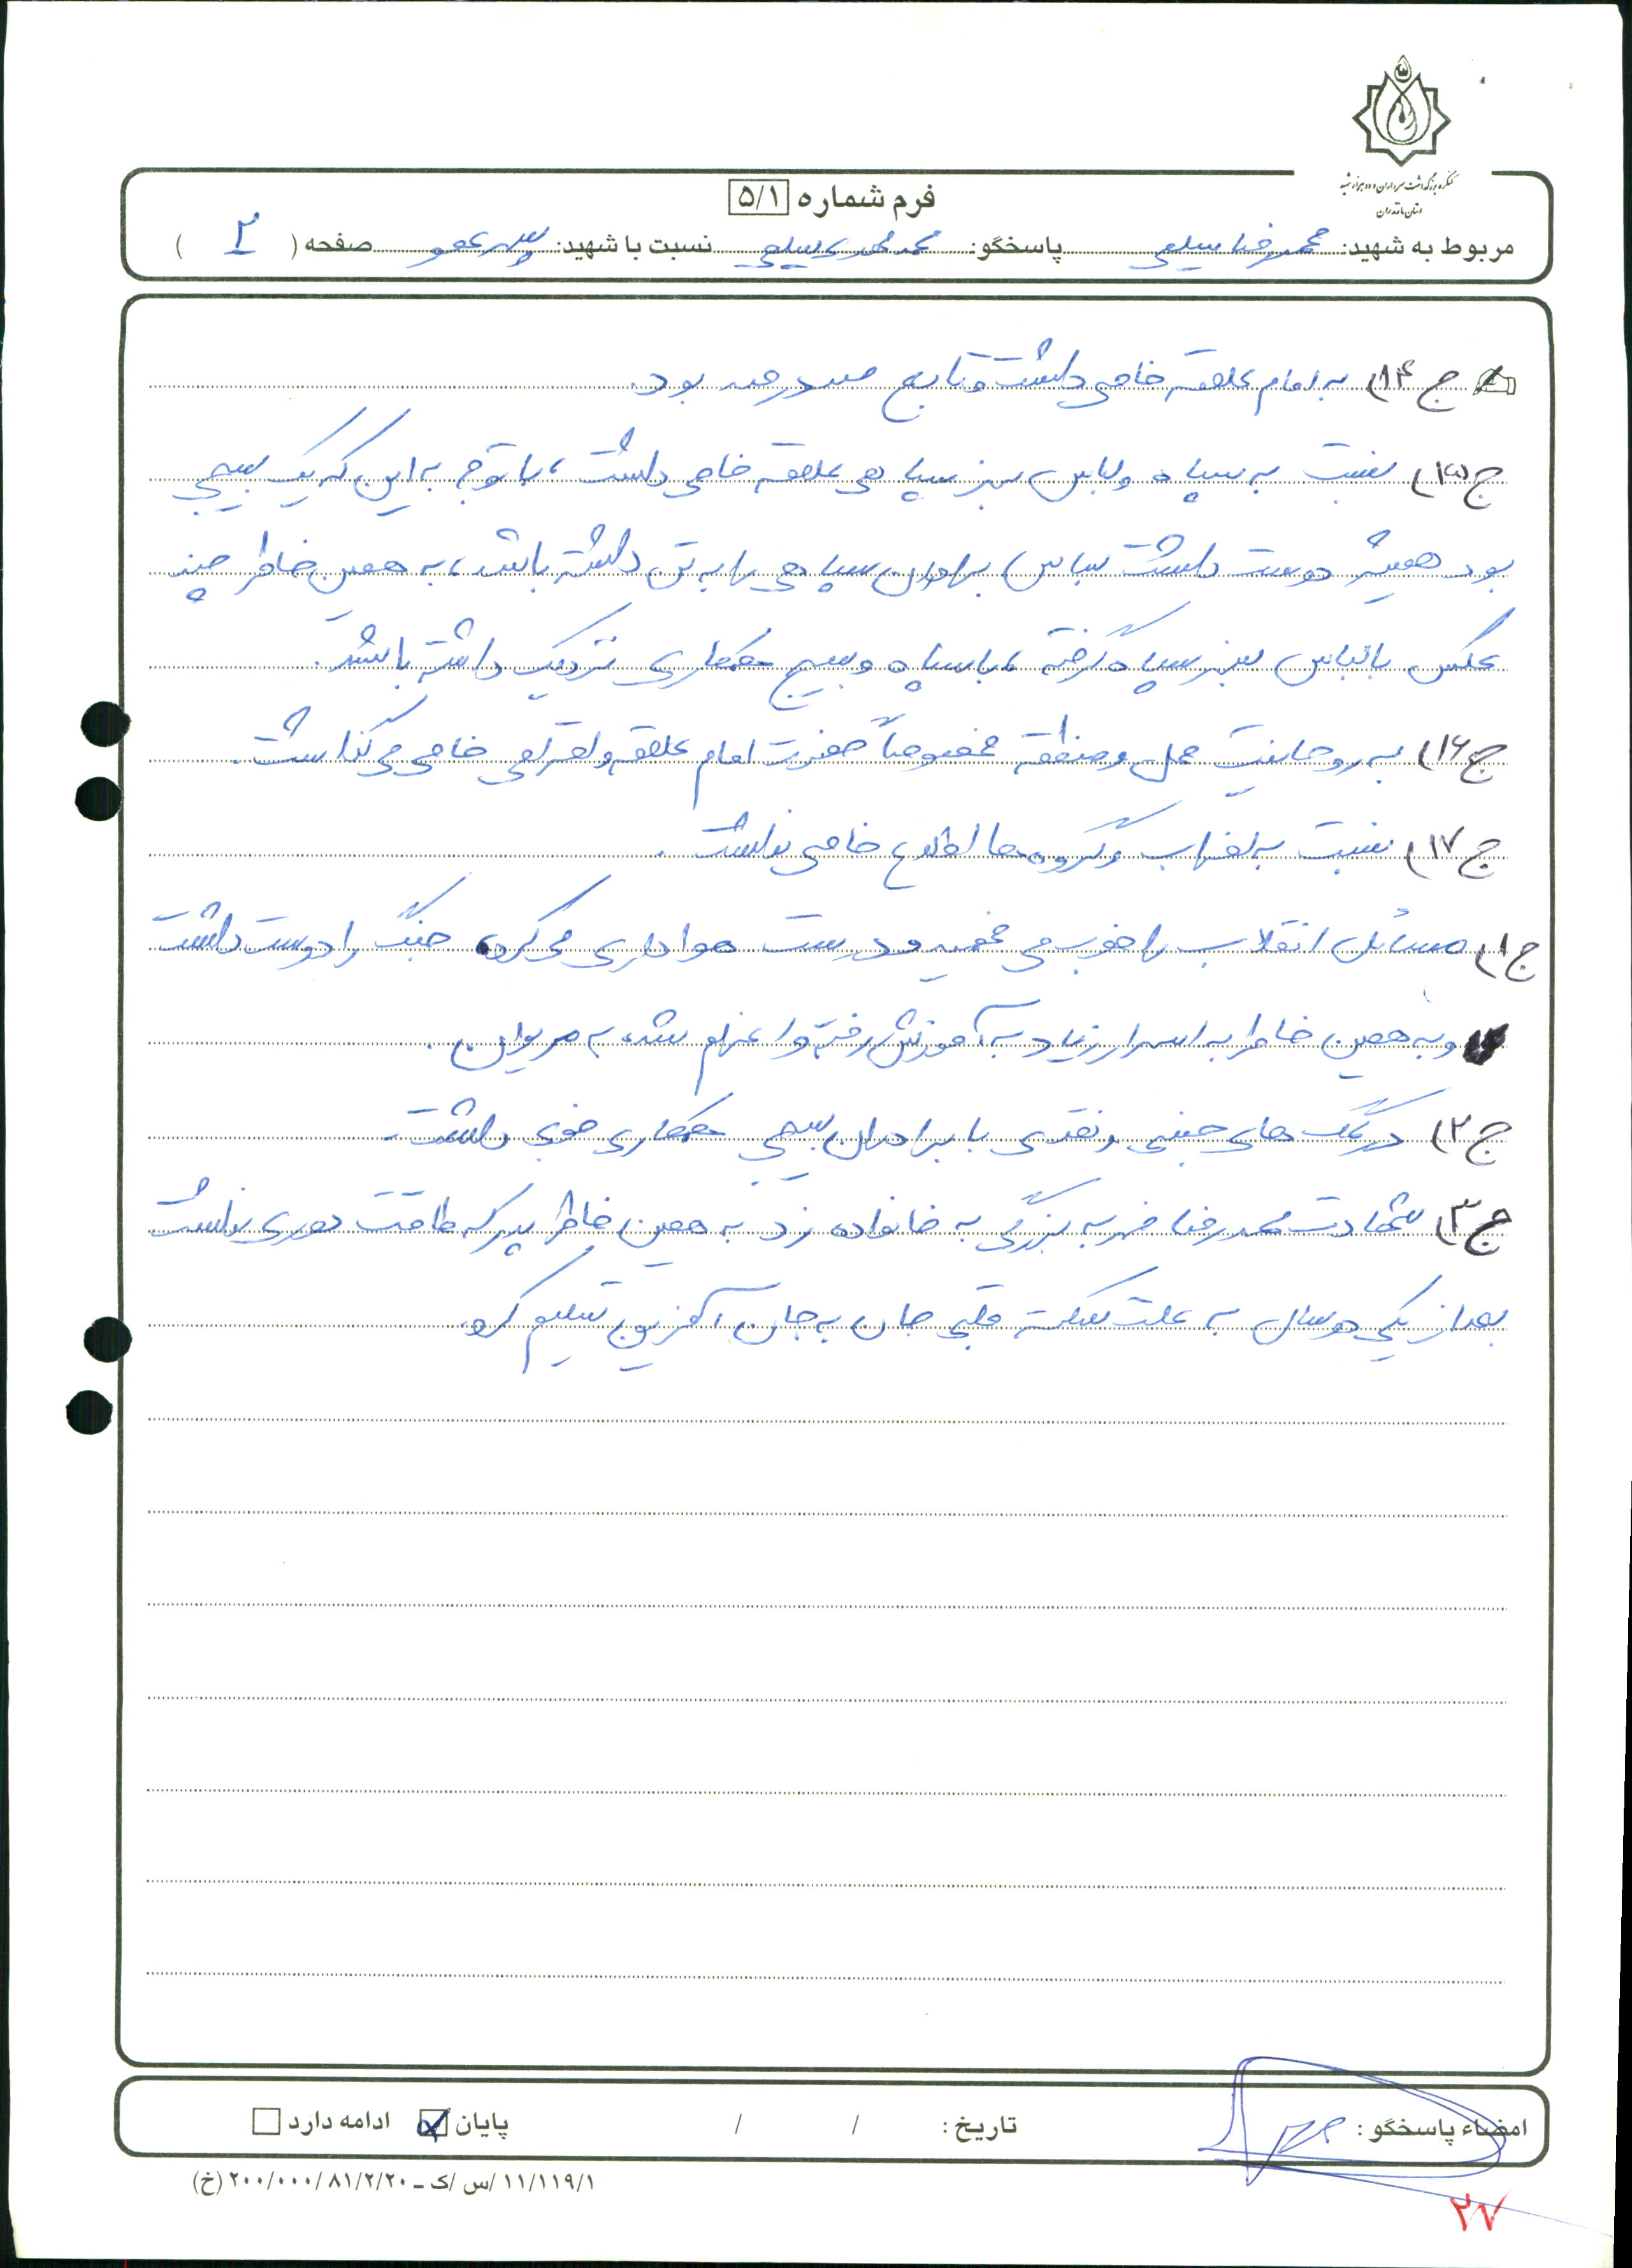 کنگره بزرگداشت سرداران و ده هزار شهید
استان مازندران
فرم شماره ۵/۱
مربوط به شهید: محمدرضا سلیمی پاسخگو: محمد مهدی سلیمی نسبت با شهید: پسر عمو صفحه ( ۲ )
ج ۱۴) به امام علاقه خاصی داشت و تابع بود.
ج ۱۵) نسبت به سپاه و لباس سبز سپاهی علاقه خاصی داشت، با توجه به این که یک بسیجی
بود همیشه دوست داشت لباس برادران سپاهی را به تن داشته باشد، به همین خاطر چند
عکس با لباس سبز سپاه گرفته، با سپاه و بسیج همکاری نزدیک داشته باشد.
ج ۱۶) به روحانیت محل و منطقه مخصوصاً حضرت امام علاقه و احترامی خاصی می گذاشت.
ج ۱۷) نسبت به احزاب و گروه ها اطلاع خاصی نداشت.
ج ۱) مسائل انقلاب را خوب می فهمید و درست هواداری می کرد، جنگ را دوست داشت
و به همین خاطر به اسرار زیاد به آموزش رفته و اعزام شد، به مریوان.
ج ۲) در کمک های جنسی و نقدی با برادران بسیجی همکاری خوبی داشت.
ج ۳) شهادت محمدرضا ضربه بزرگی به خانواده زد به همین خاطر پدر که طاقت دوری نداشت
بعد از یکی دو سال به علت سکته قلبی جان به جان آفرین تسلیم کرد.
امضاء پاسخگو : تاریخ : / / پایان ادامه دارد
۱۱/۱۱۹/۱ /س /ک ـ ۲۰۰/۰۰۰/ ۸۱/۲/۲۰ (خ)
۲۷